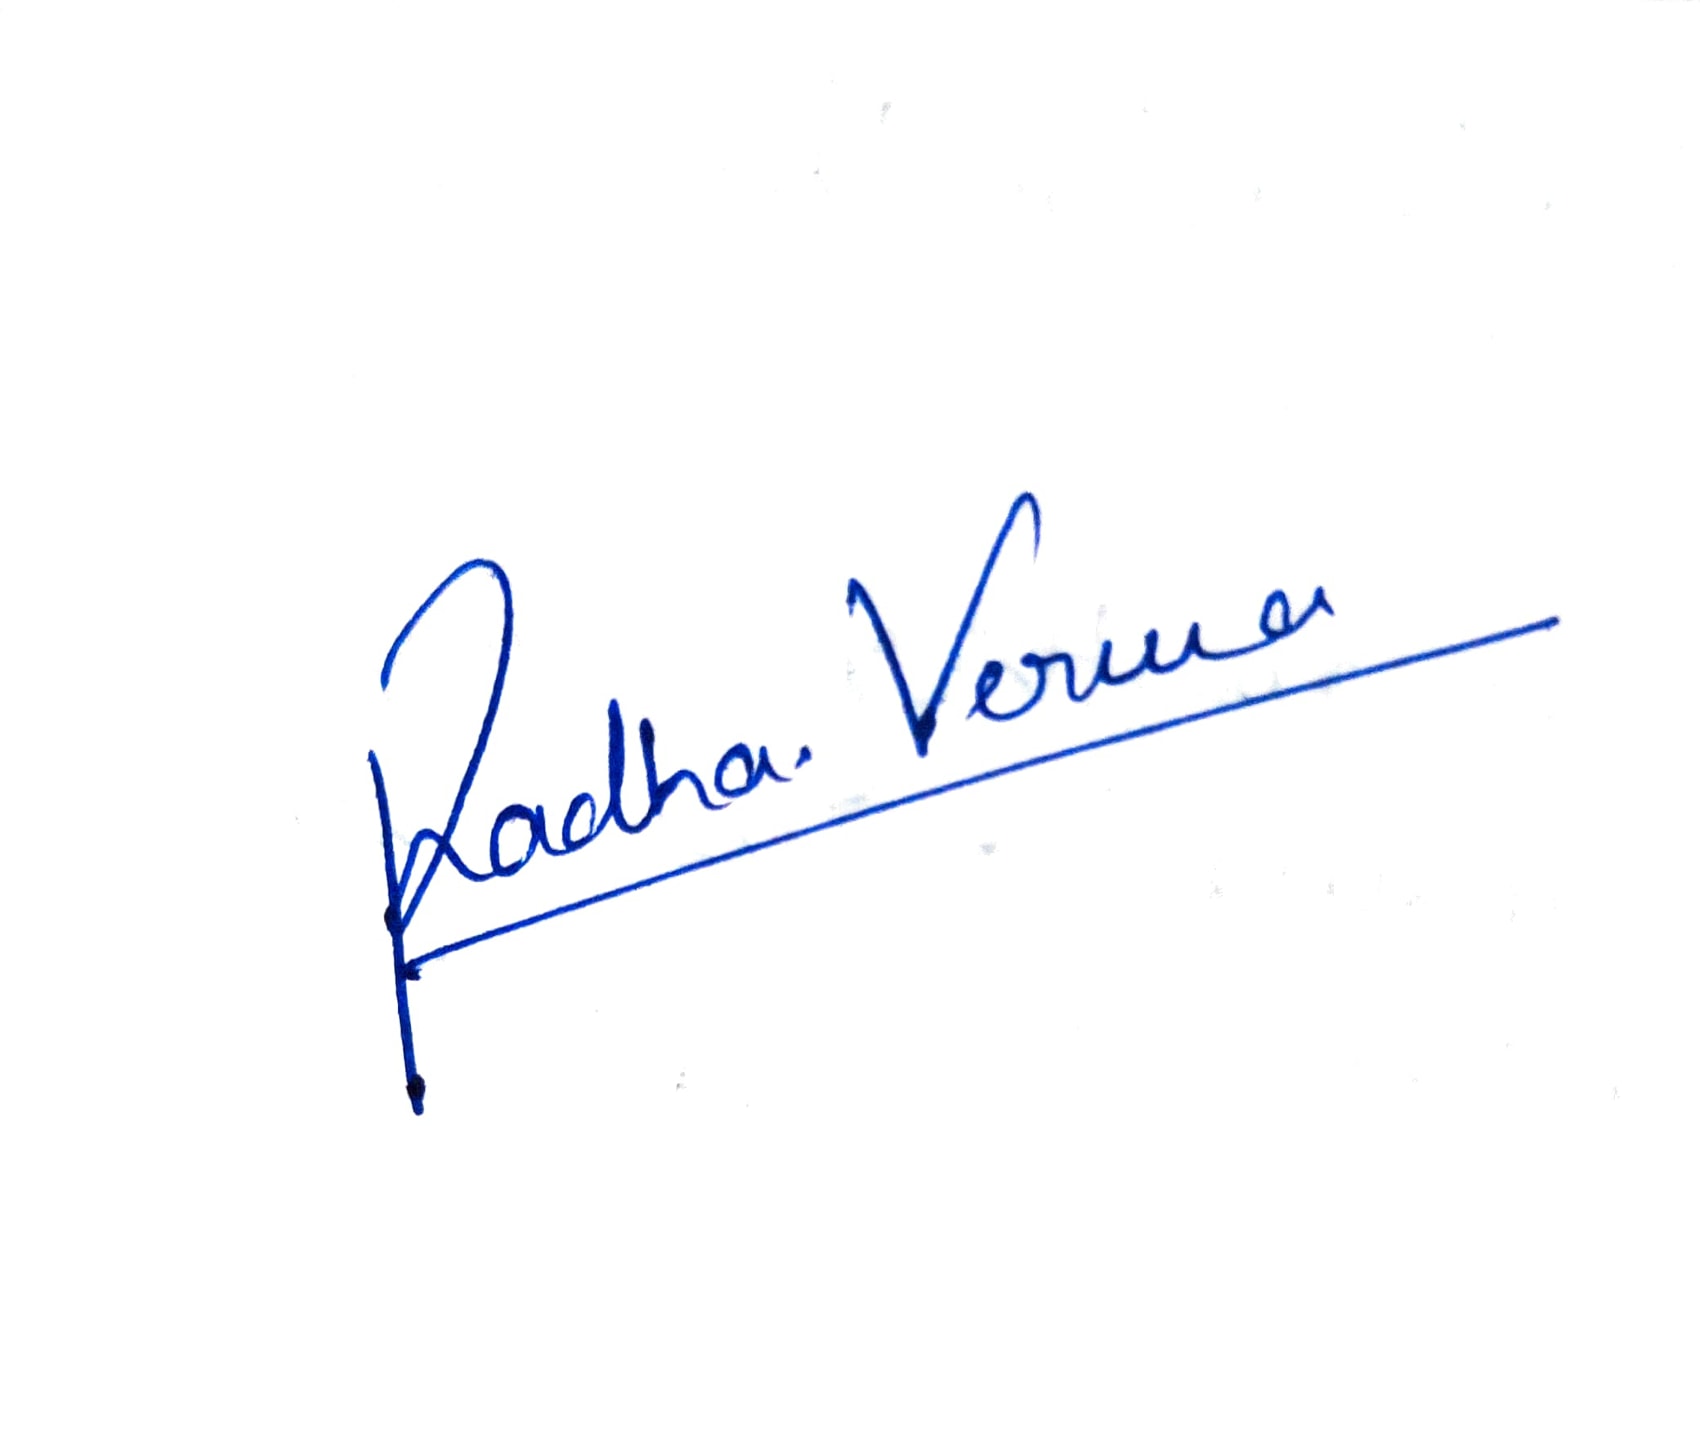 Radha. Verma